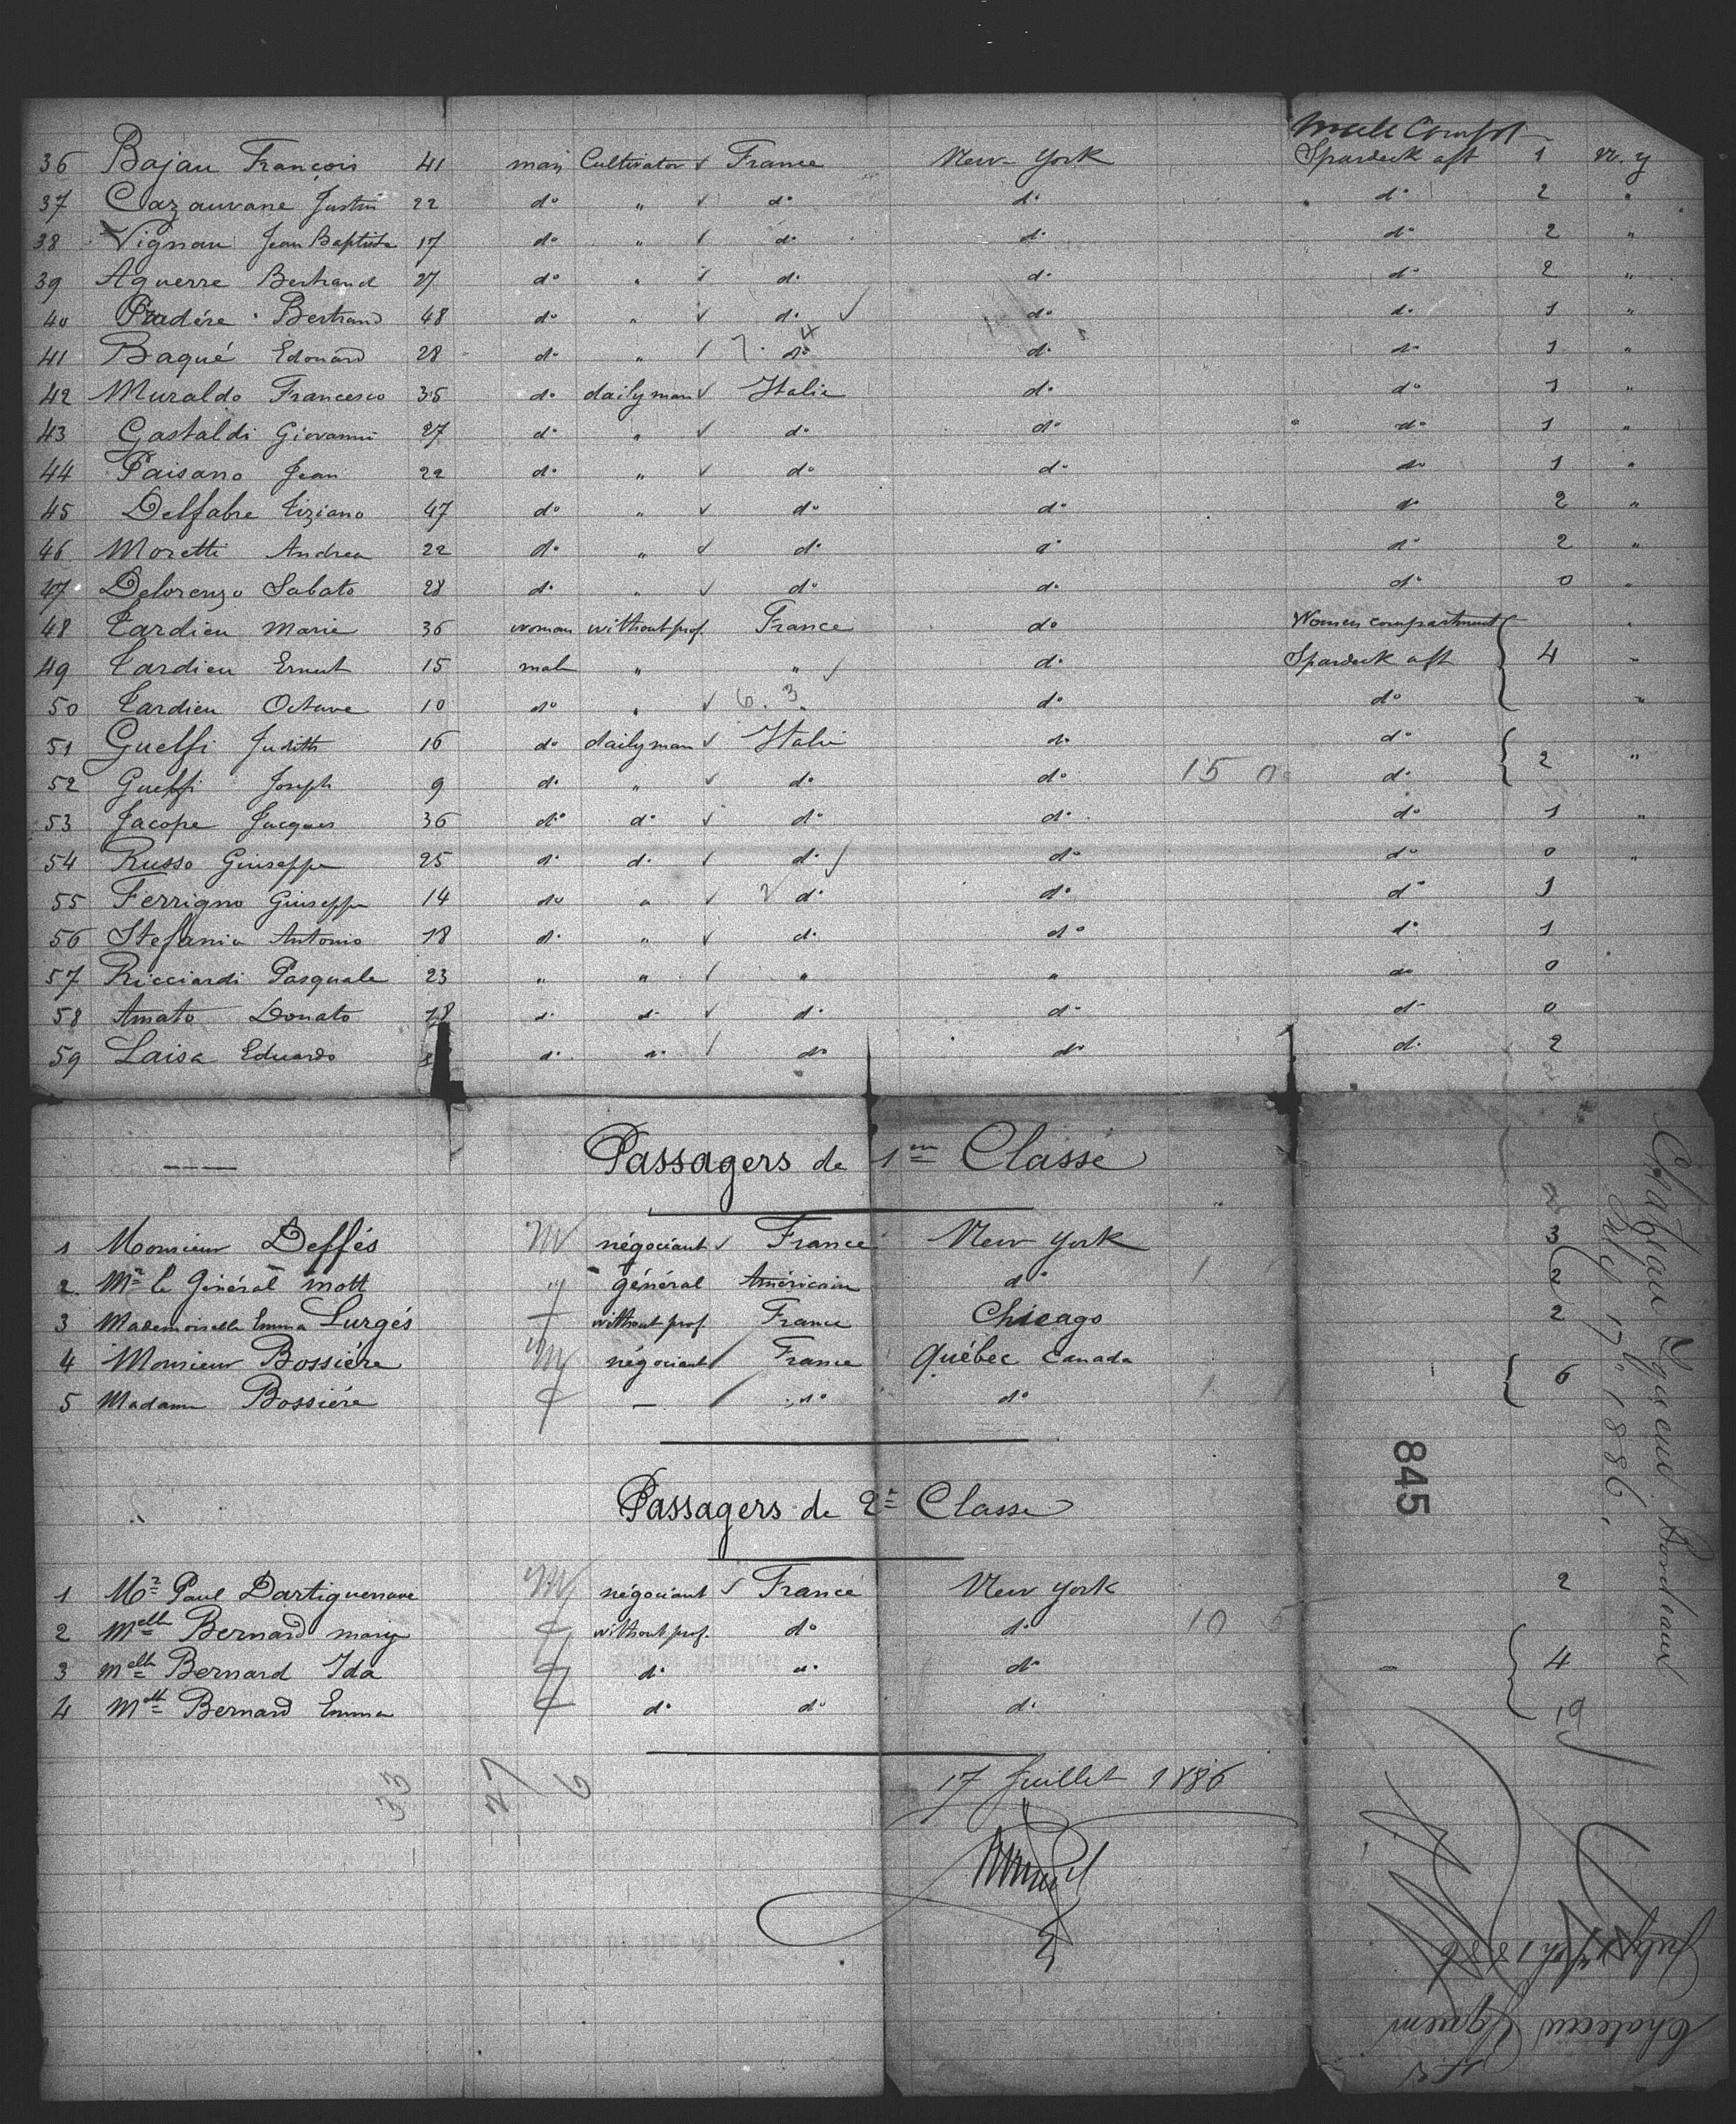 Male Compt
36 Bajau François 41 man Cultivator √ France New-York Spardeck aft 1 n. y
37 Cazauvane Justin 22 do " √ do do do 2 "
38 Vignau Jean Baptiste 17 do " √ do do do 2 "
39 Aguerre Bertrand 27 do " √ do do do 2 "
40 Pradère Bertrand 48 do " √ do √ do do 1 "
41 Baqué Edouard 28 do " √ 7. 4 do do do 1 "
42 Muraldo Francesco 35 do dailyman √ Italie do do 1 "
43 Gastaldi Giovanni 27 do " √ do do do 1 "
44 Paisano Jean 22 do " √ do do do 1 "
45 Delfabre Tiziano 47 do " √ do do do 2 "
46 Moretti Andrea 22 do " √ do do do 2 "
47 Delorenzo Sabato 28 do " √ do do do 0 "
48 Tardieu Marie 36 woman without prof. France do Women compartment "
49 Tardieu Ernest 15 male " " √ do Spardeck aft 4 "
50 Tardieu Octave 10 do " √ 6. 3 " do do "
51 Guelfi Judith 16 do dailyman √ Italie do do
52 Guelfi Joseph 9 do " √ do do 15 0 do 2 "
53 Jacope Jacques 36 do do √ do do do 1 "
54 Russo Giuseppe 25 do do √ do √ do do 0 "
55 Ferrigno Giuseppe 14 do " √ 2 do do do 1
56 Stefania Antonio 18 do " √ do do do 1
57 Ricciardi Pasquale 23 " " √ " " do 0
58 Amato Donato 18 do do √ do do do 0
59 Laisa Eduardo do do √ do do do 2
Passagers de 1re Classe
1 Monsieur Deffés M négociant √ France New York 3
2 Mr le Général Mott général Américain do 2
3 Mademoiselle Emma Lurgés without prof. France Chicago 2
4 Monsieur Bossière M négociant France Québec Canada 6
5 Madame Bossière — do do
845
Passagers de 2e Classe
1 Mr Paul Dartiguenave M négociant √ France New York 2
2 Melle Bernard Mary without prof. do do 10 5
3 Melle Bernard Ida do do do 4
4 Melle Bernard Emma do do do 19
33 27 6
17 Juillet 1886
Chateau Yquem Bordeaux
July 17th 1886.
July 17th 1886
Chateau Yquem